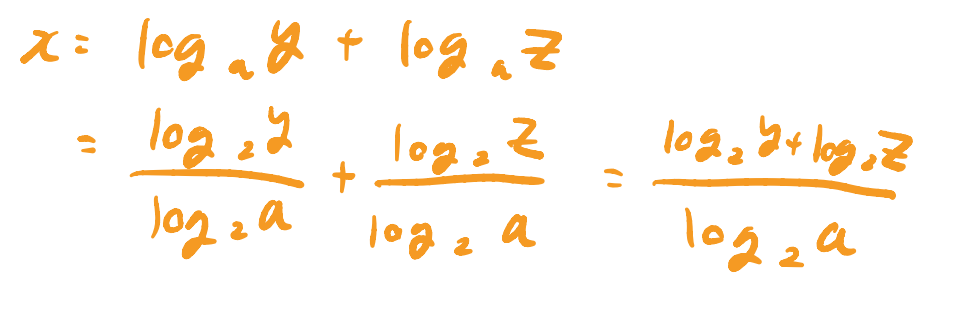 x = log_a y + log_a z
= \frac{log_2 y}{log_2 a} + \frac{log_2 z}{log_2 a} = \frac{log_2 y + log_2 z}{log_2 a}